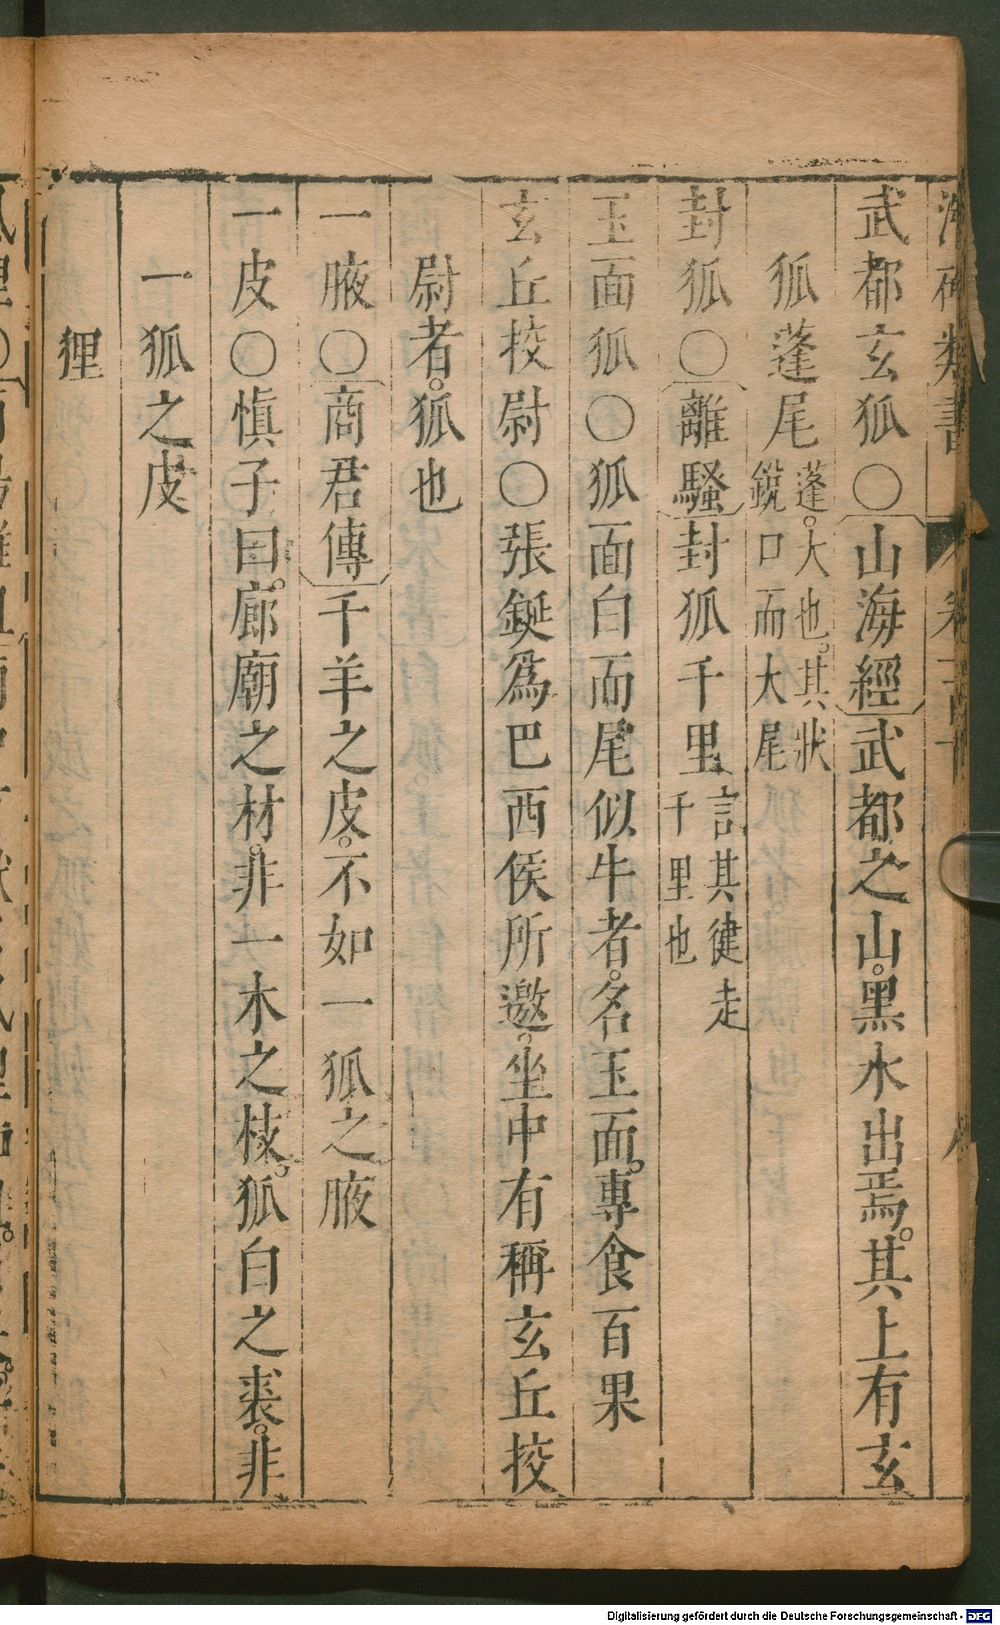 武都玄狐○山海經武都之山。黑水出焉。其上有玄
狐蓬尾蓬。大也。其狀
銳口而大尾
封狐○離騷封狐千里言其健走
千里也
玉面狐○狐面白而尾似牛者。名玉面。專食百果
玄丘校尉○張鋋爲巴西侯所邀。坐中有稱玄丘校
尉者。狐也
一腋○商君傳千羊之皮。不如一狐之腋
一皮○慎子曰。廊廟之材。非一木之枝。狐白之裘。非
一狐之皮
狸
Digitalisierung gefördert durch die Deutsche Forschungsgemeinschaft - DFG